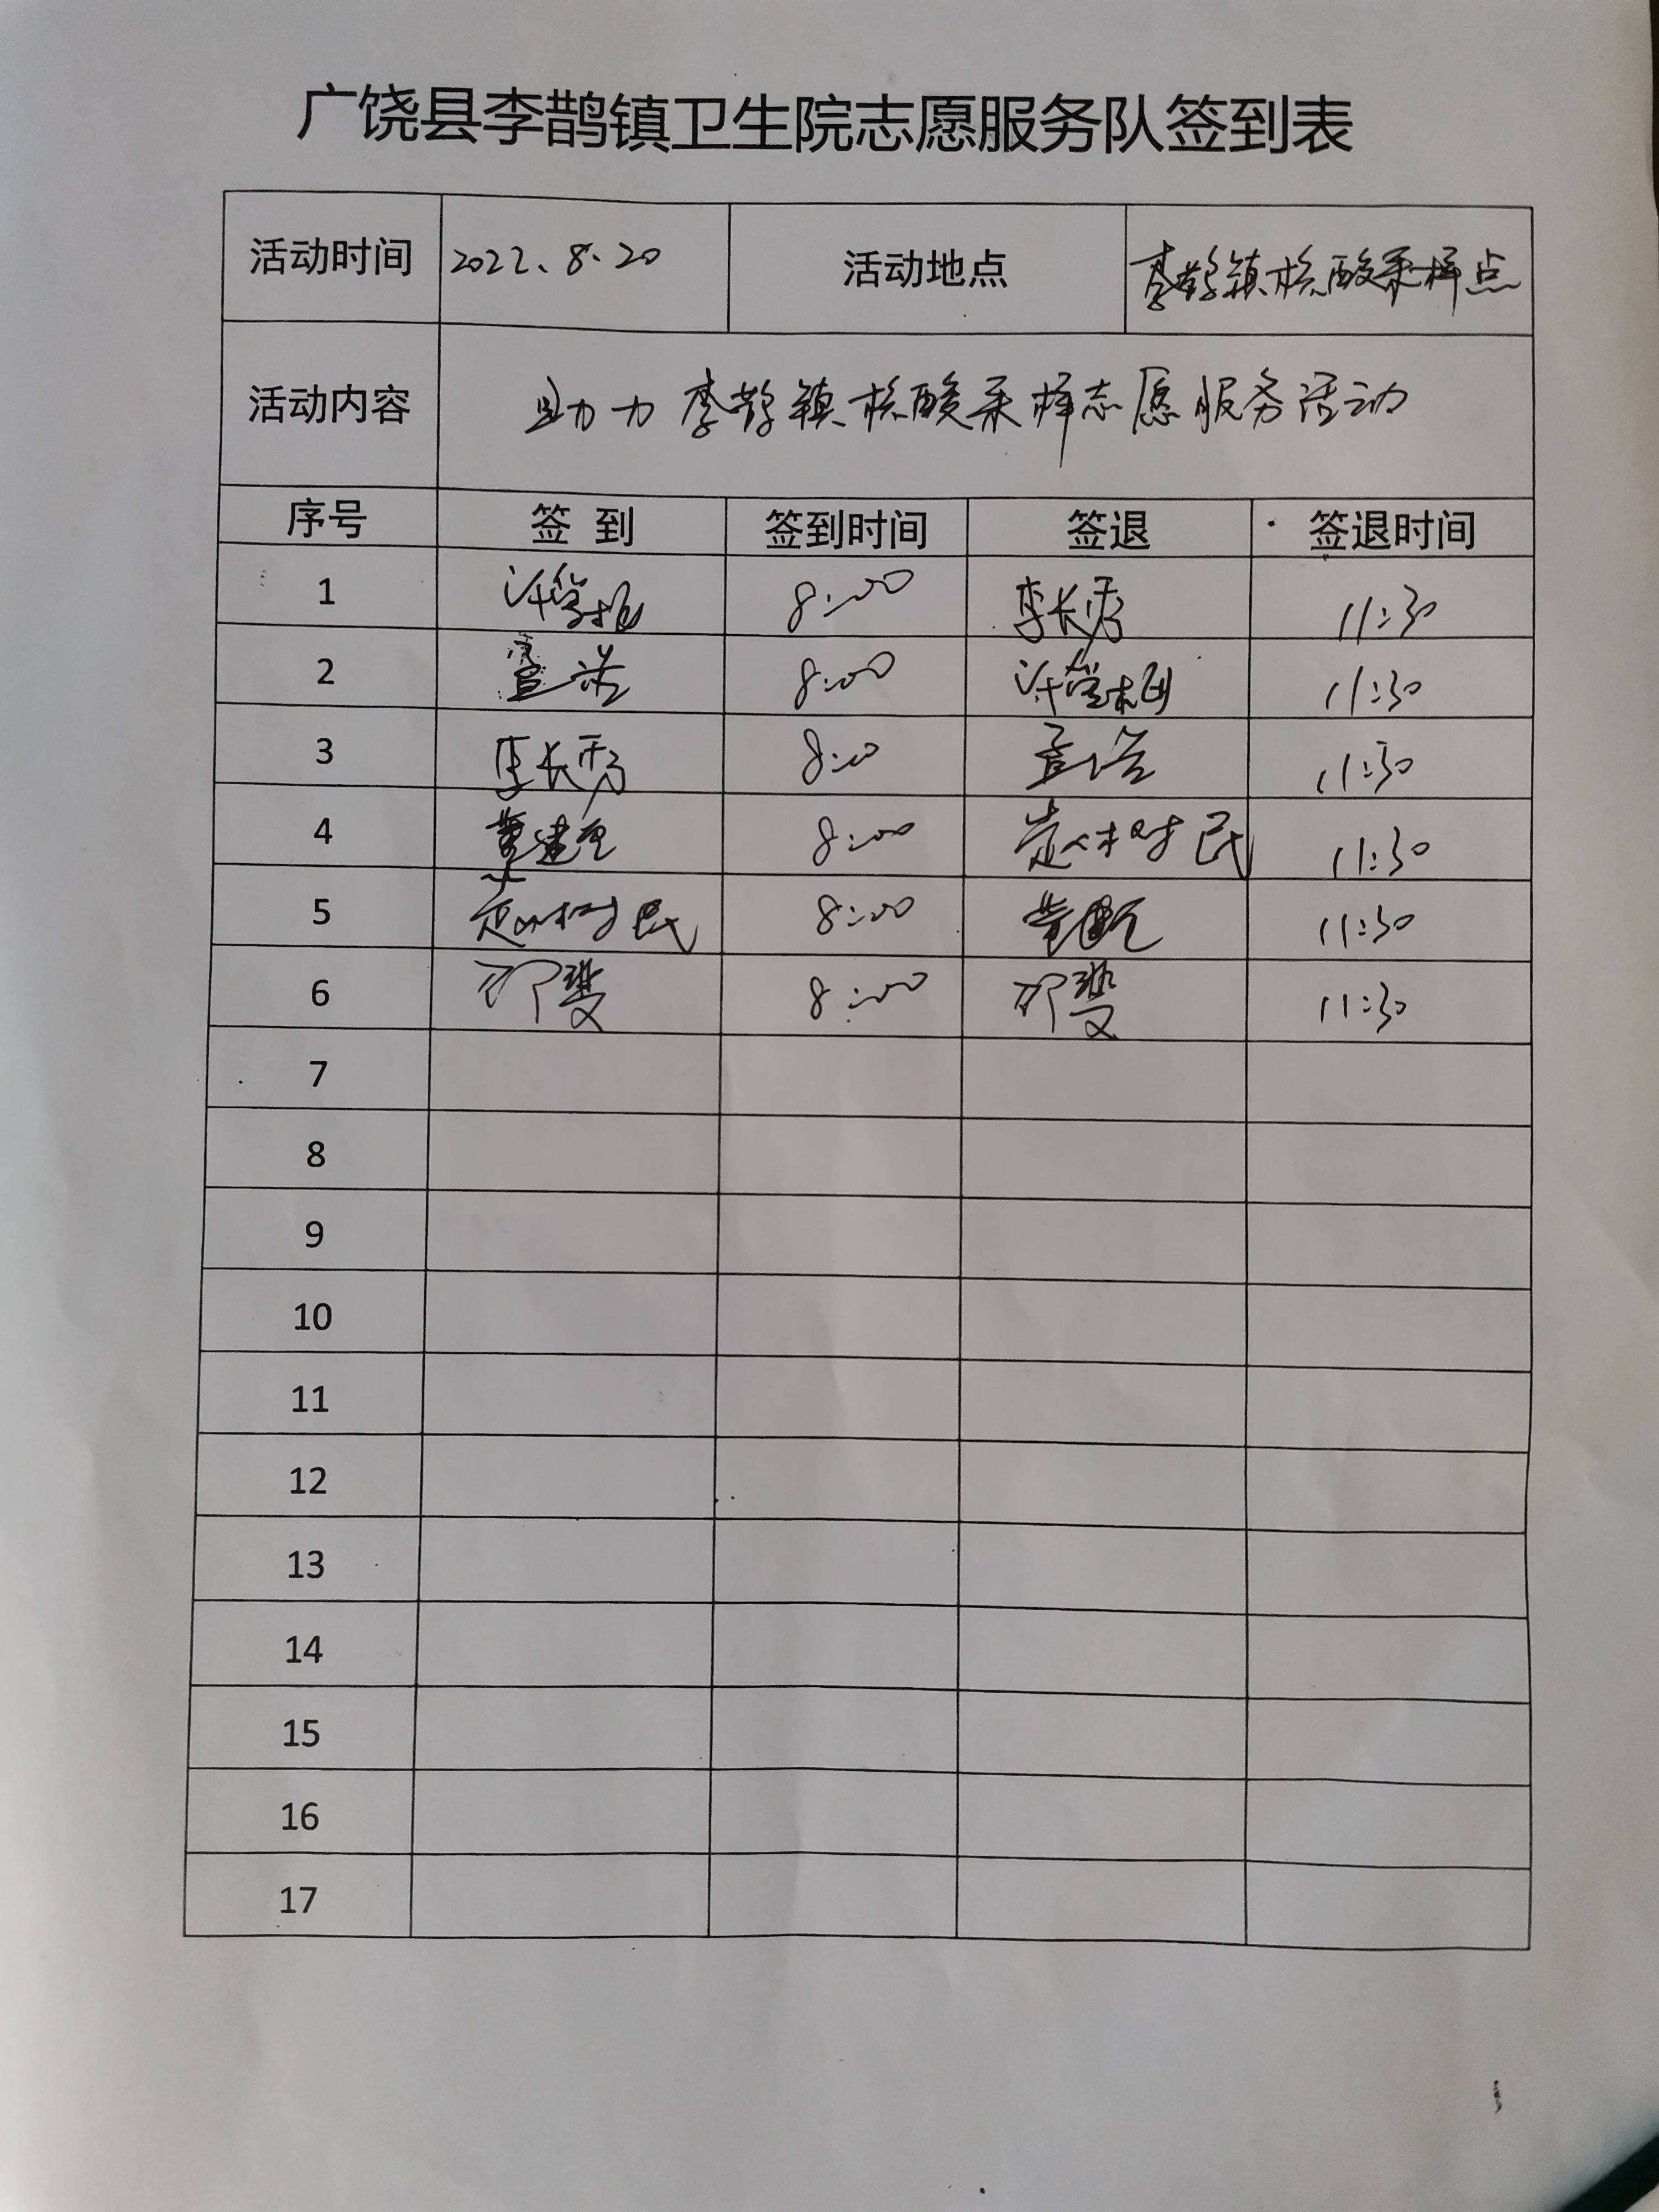 广饶县李鹊镇卫生院志愿服务队签到表
活动时间 2022、8、20 活动地点 李鹊镇核酸采样点
活动内容 助力李鹊镇核酸采样志愿服务活动
序号 签 到 签到时间 签退 签退时间
1 8:00 李长秀 11:30
2 8:00 11:30
3 李长秀 8:00 11:30
4 8:00 赵树民 11:30
5 赵树民 8:00 11:30
6 8:00 11:30
7
8
9
10
11
12
13
14
15
16
17